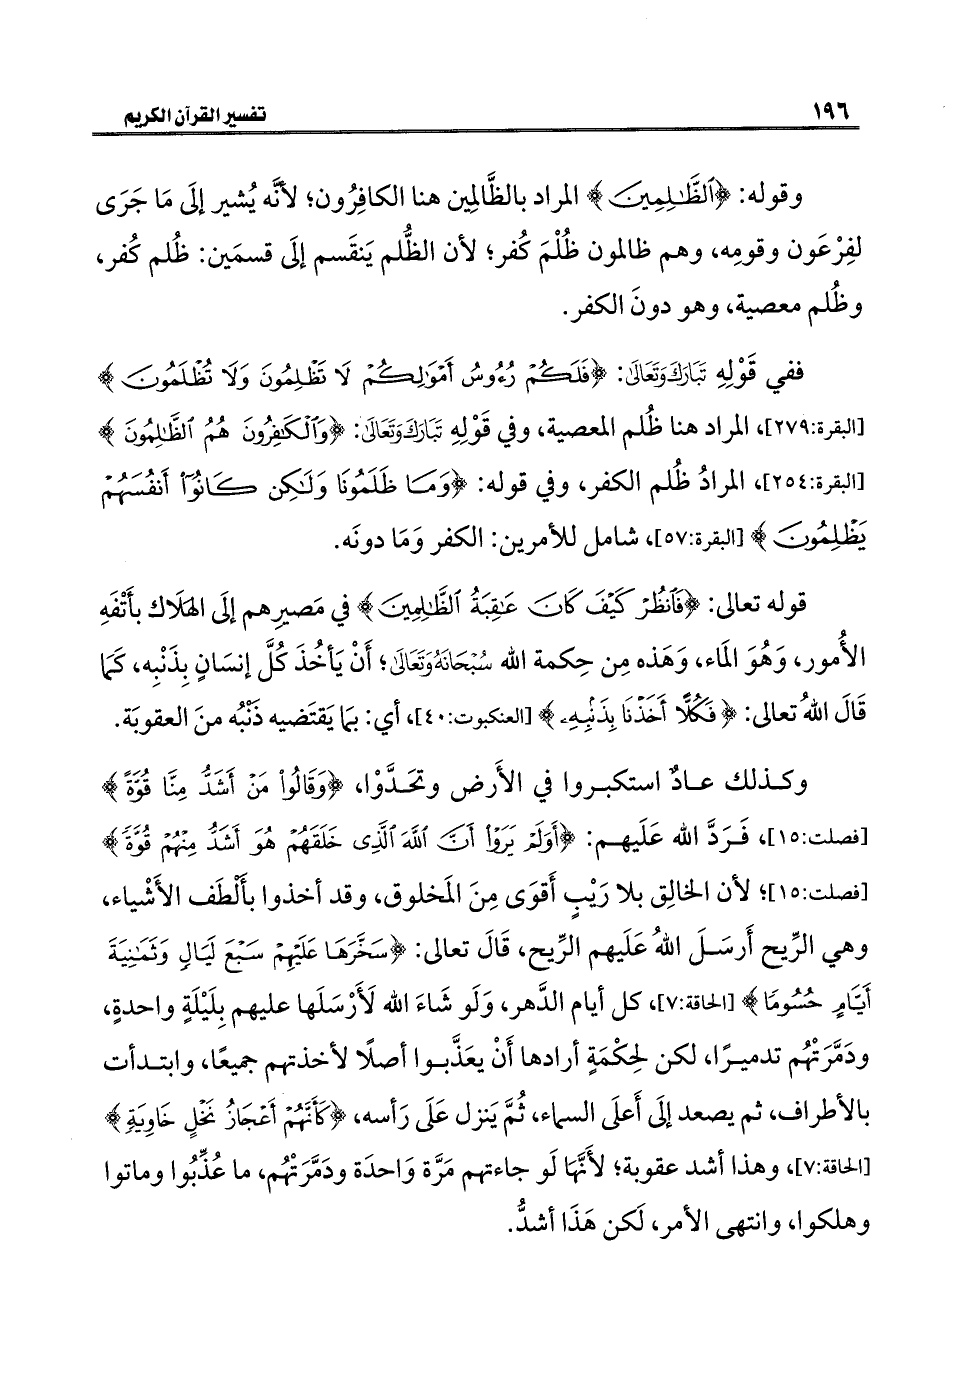 ١٩٦
تفسير القرآن الكريم
وقوله: ﴿ٱلظَّـٰلِمِينَ﴾ المراد بالظَّالِمِين هنا الكافِرُون؛ لأنَّه يُشير إلَى مَا جَرَى
لفِرْعَون وقومِه، وهم ظالمون ظُلْمَ كُفر؛ لأن الظُّلم يَنقَسم إلَى قسمَين: ظُلم كُفر،
وظُلم معصية، وهو دونَ الكفر.
ففي قَوْلِهِ تَبَارَكَ وَتَعَالَى: ﴿فَلَكُمْ رُءُوسُ أَمْوَٰلِكُمْ لَا تَظْلِمُونَ وَلَا تُظْلَمُونَ﴾
[البقرة:٢٧٩]، المراد هنا ظُلم المعصية، وفي قَوْلِهِ تَبَارَكَ وَتَعَالَى: ﴿وَٱلْكَـٰفِرُونَ هُمُ ٱلظَّـٰلِمُونَ﴾
[البقرة:٢٥٤]، المرادُ ظُلم الكفر، وفي قوله: ﴿وَمَا ظَلَمُونَا وَلَـٰكِن كَانُوٓا۟ أَنفُسَهُمْ
يَظْلِمُونَ﴾ [البقرة:٥٧]، شامل للأمرين: الكفر وَمَا دونَه.
قوله تعالى: ﴿فَٱنظُرْ كَيْفَ كَانَ عَـٰقِبَةُ ٱلظَّـٰلِمِينَ﴾ في مَصيرِهم إلَى الهَلَاك بأَتْفَهِ
الأُمور، وَهُوَ الماء، وَهَذه مِن حِكمة الله سُبْحَانَهُ وَتَعَالَى؛ أَنْ يَأخُذَ كُلَّ إنسَانٍ بِذَنْبِه، كَمَا
قَالَ اللهُ تعالى: ﴿فَكُلًّا أَخَذْنَا بِذَنۢبِهِۦ﴾ [العنكبوت:٤٠]، أي: بِمَا يَقتَضيه ذَنْبُه منَ العقوبَة.
وكذلك عادٌ استكبروا في الأَرض وتحَدَّوْا، ﴿وَقَالُوا۟ مَنْ أَشَدُّ مِنَّا قُوَّةً﴾
[فصلت:١٥]، فَرَدَّ الله عَلَيهم: ﴿أَوَلَمْ يَرَوْا۟ أَنَّ ٱللَّهَ ٱلَّذِى خَلَقَهُمْ هُوَ أَشَدُّ مِنْهُمْ قُوَّةً﴾
[فصلت:١٥]؛ لأن الخالِق بلا رَيْبٍ أَقوَى مِنَ المَخلوق، وقد أخذوا بأَلْطَف الأَشْياء،
وهي الرِّيح أَرسَلَ اللهُ عَلَيهم الرِّيح، قَالَ تعالى: ﴿سَخَّرَهَا عَلَيْهِمْ سَبْعَ لَيَالٍ وَثَمَـٰنِيَةَ
أَيَّامٍ حُسُومًا﴾ [الحاقة:٧]، كل أيام الدَّهر، وَلَو شَاءَ الله لَأَرْسَلَها عليهم بِلَيْلَةٍ واحدةٍ،
ودَمَّرَتْهُم تدميرًا، لكن لحِكْمَةٍ أرادها أَنْ يعَذَّبوا أصلًا لأخذتهم جميعًا، وابتدأت
بالأطراف، ثم يصعد إلَى أَعلَى السماء، ثُمَّ يَنزل عَلَى رَأسه، ﴿كَأَنَّهُمْ أَعْجَازُ نَخْلٍ خَاوِيَةٍ﴾
[الحاقة:٧]، وهذا أشد عقوبة؛ لأَنَّهَا لَو جاءتهم مَرَّة وَاحدَة ودَمَّرَتْهُم، ما عُذِّبُوا وماتوا
وهلكوا، وانتهى الأمر، لَكن هَذَا أشدُّ.